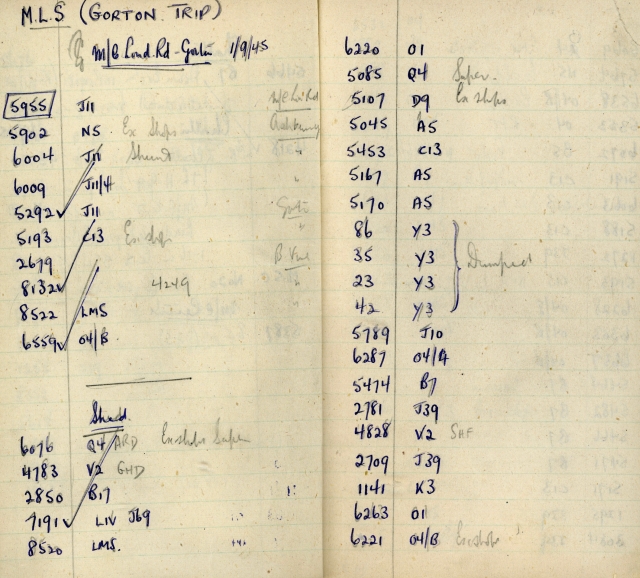 M.L.S (GORTON TRIP)
M/C Lond. Rd - Gorton 1/9/45
5955 J11
5902 N5 Ex Shops
6004 J11 Shunt
6009 J11/4
5292 J11 Gorton
5193 C13 Ex shops
2699 B
8132 4249
8522 LMS
6559 04/B
Shed
6076 Q4 ARD Ex shops Super
4783 V2 GHD
2850 B17
7191 LIV J69
8520 LMS.
6220 01
5085 Q4 Super
5107 D9 Ex shops
5045 A5
5453 C13
5167 A5
5170 A5
86 Y3
35 Y3 Dumped
23 Y3
42 Y3
5789 J10
6287 04/4
5474 B7
2781 J39
4828 V2 SHF
2709 J39
1141 K3
6263 01
6221 04/B Ex shops